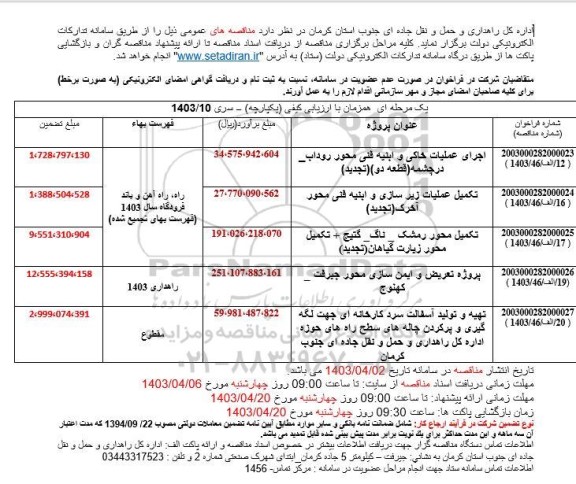 اداره کل راهداری و حمل و نقل جاده ای جنوب استان کرمان در نظر دارد مناقصه های عمومی ذیل را از طریق سامانه تدارکات
الکترونیکی دولت برگزار نماید. کلیه مراحل برگزاری مناقصه از دریافت اسناد مناقصه تا ارائه پیشنهاد مناقصه گران و بازگشایی
پاکت ها از طریق درگاه سامانه تدارکات الکترونیکی دولت (ستاد) به آدرس "www.setadiran.ir" انجام خواهد شد.
متقاضیان شرکت در فراخوان در صورت عدم عضویت در سامانه، نسبت به ثبت نام و دریافت گواهی امضای الکترونیکی (به صورت برخط)
برای کلیه صاحبان امضای مجاز و مهر سازمانی اقدام لازم را به عمل آورند.
یک مرحله ای همزمان با ارزیابی کیفی (یکپارچه) – سری 1403/10
شماره فراخوان (شماره مناقصه) عنوان پروژه مبلغ برآورد(ریال) فهرست بهاء مبلغ تضمین
2003000282000023 اجرای عملیات خاکی و ابنیه فنی محور روداب_ 34،575،942،604 1،728،797،130
(12/الف/1403/46) درچشمه(قطعه دو)(تجدید)
2003000282000024 تکمیل عملیات زیر سازی و ابنیه فنی محور 27،770،090،562 راه، راه آهن و باند 1،388،504،528
(16/الف/1403/46) آخرک(تجدید) فرودگاه سال 1403
(فهرست بهای تجمیع شده)
2003000282000025 تکمیل محور رمشک _ ناگ_ گتیچ + تکمیل 191،026،218،070 9،551،310،904
(17/الف/1403/46) محور زیارت گیاهان(تجدید)
2003000282000026 پروژه تعریض و ایمن سازی محور جیرفت _ 251،107،883،161 راهداری 1403 12،555،394،158
(19/الف/1403/46) کهنوج
2003000282000027 تهیه و تولید آسفالت سرد کارخانه ای جهت لگه 59،981،487،822 مقطوع 2،999،074،391
(20/الف/1403/46) گیری و پرکردن چاله های سطح راه های حوزه
اداره کل راهداری و حمل و نقل جاده ای جنوب
کرمان
ParsNamadData
۰۲۱-۸۸۳۴۹۶۷۰
تاریخ انتشار مناقصه در سامانه تاریخ 1403/04/02 می باشد
مهلت زمانی دریافت اسناد مناقصه از سایت: تا ساعت 09:00 روز چهارشنبه مورخ 1403/04/06
مهلت زمانی ارائه پیشنهاد: تا ساعت 09:00 روز چهارشنبه مورخ 1403/04/20
زمان بازگشایی پاکت ها: ساعت 09:30 روز چهارشنبه مورخ 1403/04/20
نوع تضمین شرکت در فرآیند ارجاع کار: شامل ضمانت نامه بانکی و سایر موارد مطابق آیین نامه تضمین معاملات دولتی مصوب 22/ 1394/09 که مدت اعتبار
آن سه ماهه و این مدت حداکثر برای یک نوبت و برابر مدت پیش بینی شده قابل تمدید می باشد.
اطلاعات تماس دستگاه مناقصه گزار جهت دریافت اطلاعات بیشتر در خصوص اسناد مناقصه و ارائه پاکت الف: اداره کل راهداری و حمل و نقل
جاده ای جنوب استان کرمان به نشانی: جیرفت – کیلومتر 5 جاده کرمان_ابتدای شهرک صنعتی شماره 2 و تلفن : 03443317523
اطلاعات تماس سامانه ستاد جهت انجام مراحل عضویت در سامانه : مرکز تماس- 1456